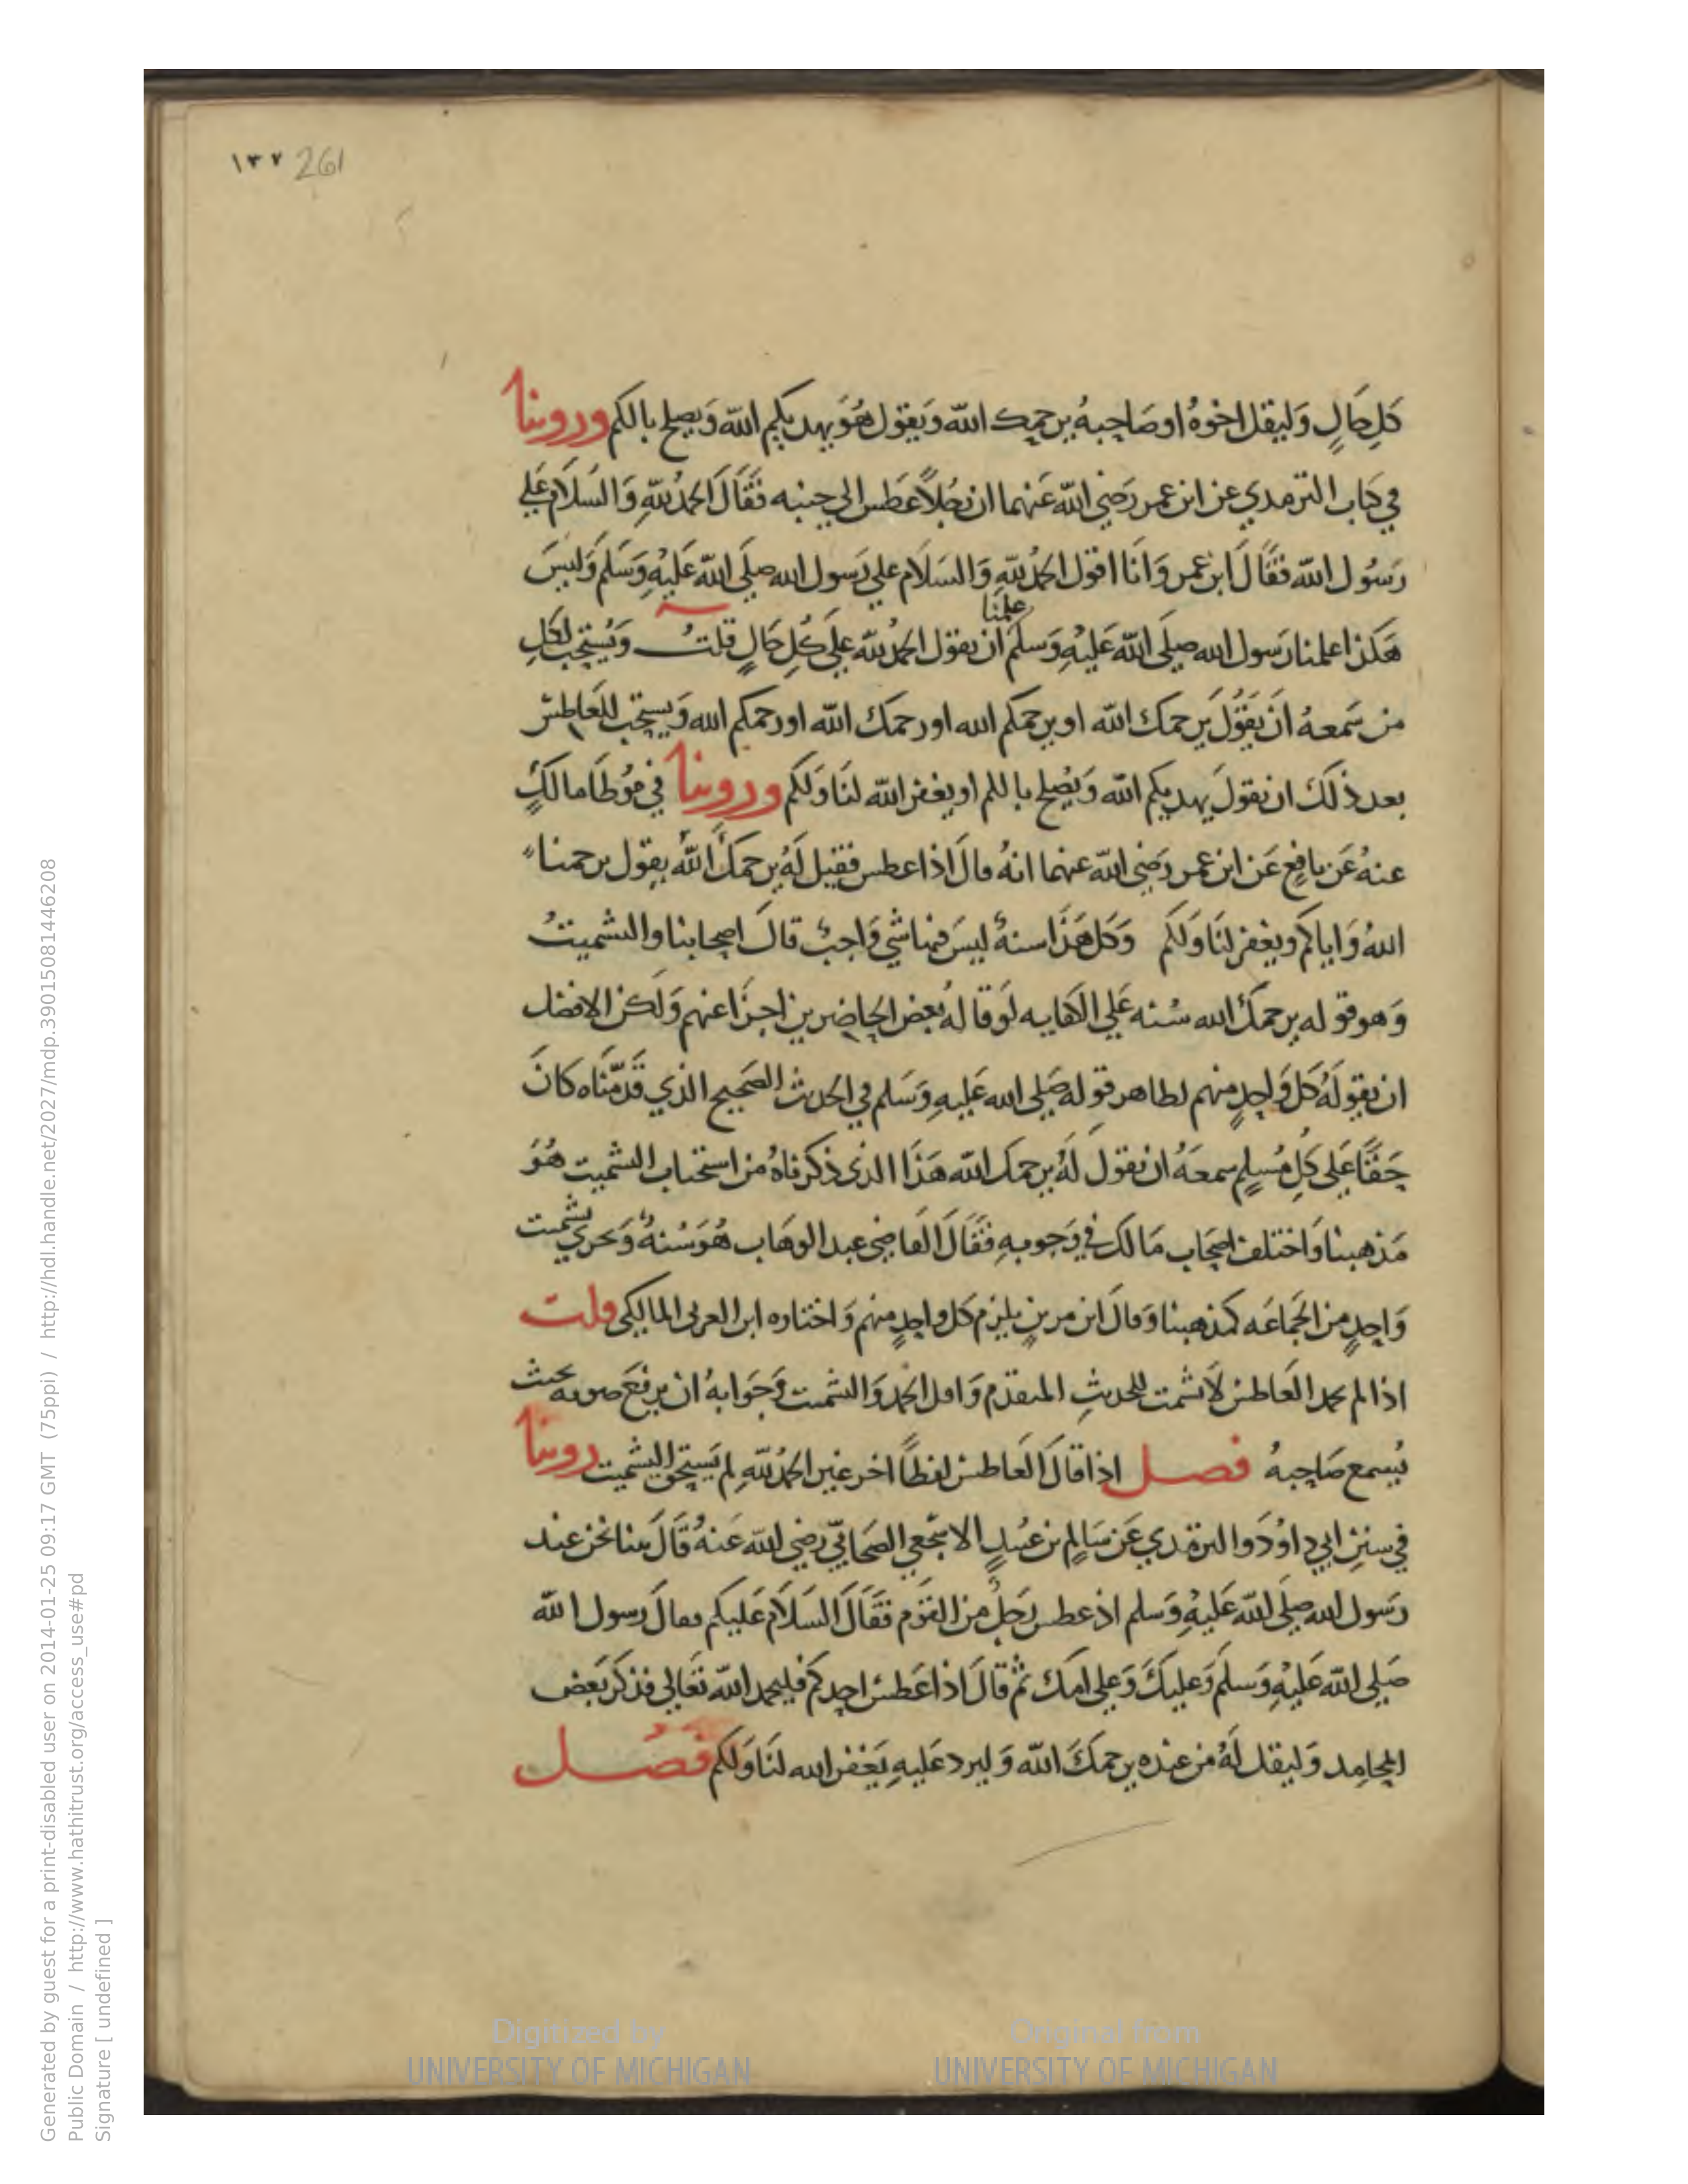 ١٣٧ 261
كل حَالٍ وَليقل اخوهُ او صَاحبهُ يرحمك الله وَيقول هُوَ يهديكم الله وَيصلح بالكم وروينا
في كتاب الترمدي عن ابن عمر رَضي الله عَنهما ان رجُلاً عَطس الى جنبه فَقَالَ الحمدُ للهِ وَالسَلَام عَلي
رَسُول الله فَقَالَ ابن عمر وَانَا اقول الحمدُ للهِ وَالسَلَام علي رَسول الله صلَى الله عَليهِ وَسَلم وَليسَ
علمنا
هَكذا علمنا رَسول الله صلَى الله عَليهِ وَسلم ان نقول الحمدُ لله عَلَى كُلِ حَالٍ قلتُ وَيُستحب لكلِ
من سَمعهُ ان يَقُولَ يَرحمك الله او يرحمكم الله او رحمك الله او رحمكم الله وَيستحب للعَاطس
بعد ذلك ان يقولَ يهديكم الله وَيُصلح باللم او يغفر الله لنَا وَلكم وروينا في مُوطَا مالكٍ
عنهُ عَن نافعٍ عَن ابن عمر رَضي الله عنهما انهُ قالَ اذا عطس فقيل لَهُ يرحمكَ اللهُ يقول يرحمنا
اللهُ وَاياكم ويغفر لنَا وَلكم وَكل هَذا سنهٌ ليسَ فيها شي وَاجبٌ قالَ اصحابنا والتشميتُ
وَهو قوله يرحمكَ الله سُنه عَلي الكفايه لَو قالهُ بعض الحَاضرين اجزَا عنهم وَلكن الافضل
ان يقولَهُ كل وَاحدٍ منهم لظاهر قوله صَلى الله عَليهِ وَسَلم في الحديث الصَحيح الذي قَدمنَاه كانَ
حَقًا عَلى كُلِ مُسلمٍ سمعَهُ ان يقولَ لَهُ يرحمك الله هَذا الذي ذكرناهُ من استحباب التشميت هُوَ
مَذهبنا وَاختلف اصحَاب مَالك في وَجوبهِ فَقَالَ القَاضي عبد الوهَاب هُوَ سُنهٌ وَيجزي تشميت
وَاحدٍ من الجَمَاعَه كمذهبنا وَقالَ ابن مرينٍ يلزم كل واحدٍ منهم وَاختاره ابن العربي المالكي قلت
اذا لم يحمد العَاطس لَا يشمت للحديثِ المتقدم وَاقل الحمد وَالتشميت وَجَوَابهُ ان يرفعَ صوته بحيث
يُسمع صَاحبهُ فصل اذا قالَ العَاطس لفظًا اخر غير الحمدُ للهِ لم يَستحق التشميت روينا
في سننِ ابي داوُدَ والترمدي عَن سَالم بن عبيدٍ الاشجعي الصحَابيّ رضي الله عَنهُ قَالَ بينا نحن عند
رَسول الله صلَى الله عَليهِ وَسلم اذ عطس رَجلٌ من القَوم فَقَالَ السَلَام عَليكم فقالَ رَسول الله
صَلى الله عَليْهِ وَسلَم وَعليكَ وَعلى امك ثُم قالَ اذا عَطسَ احدكم فليحمد الله تعَالي فذكرَ بَعض
المحامد وَليقل لَهُ من عندَه يرحمكَ الله وَليرد عَليهِ يَغفر الله لنَا وَلكم فصل
Generated by guest for a print-disabled user on 2014-01-25 09:17 GMT (75ppi) / http://hdl.handle.net/2027/mdp.39015081446208
Public Domain / http://www.hathitrust.org/access_use#pd
Signature [ undefined ]
Digitized by
UNIVERSITY OF MICHIGAN
Original from
UNIVERSITY OF MICHIGAN